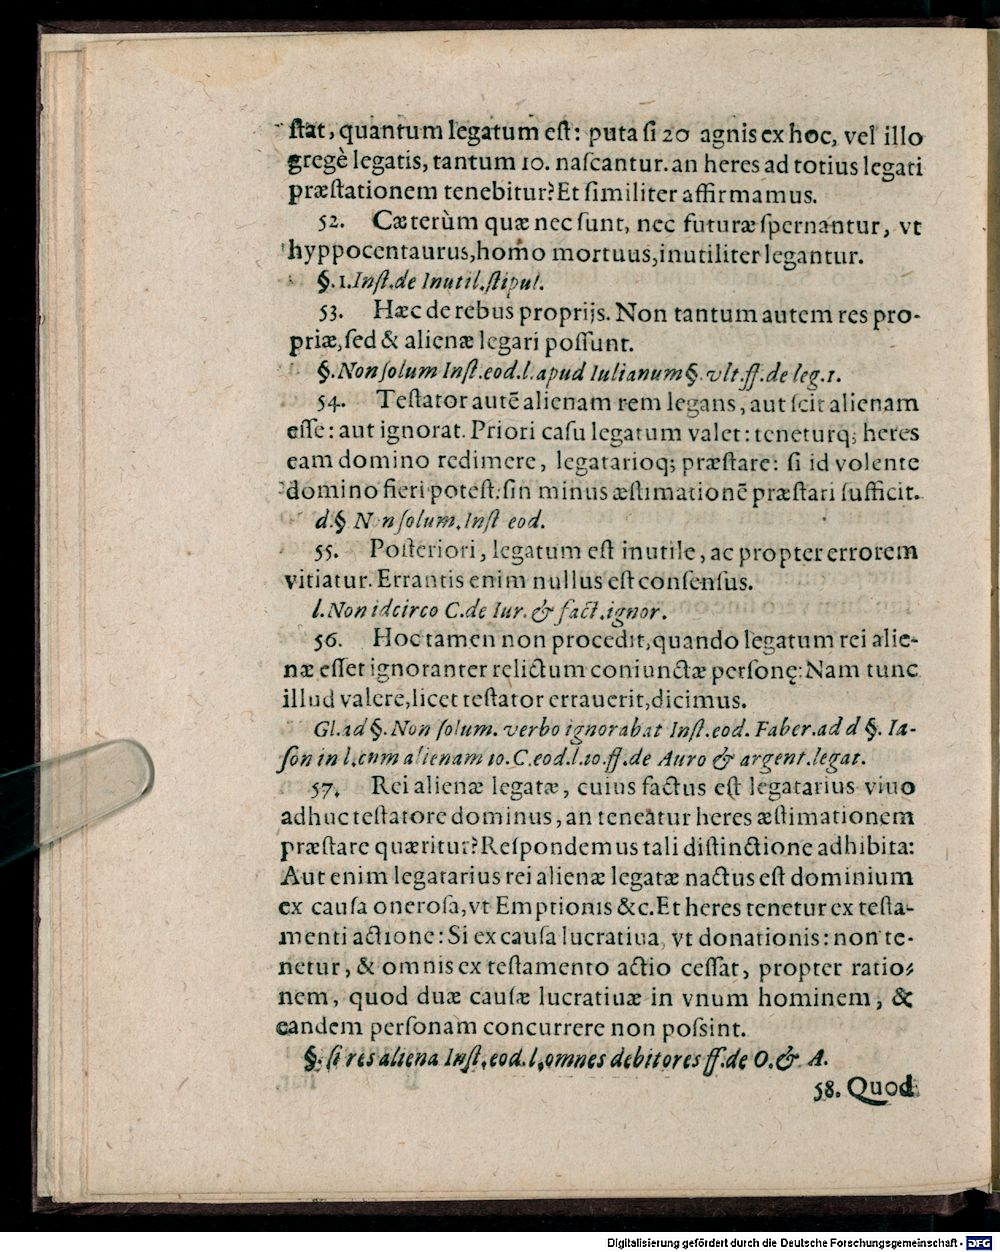 ſtat, quantum legatum eſt: puta ſi 20 agnis ex hoc, vel illo
gregè legatis, tantum 10. naſcantur. an heres ad totius legati
præſtationem tenebitur? Et ſimiliter affirmamus.
52. Cæterùm quæ nec ſunt, nec futuræ ſpernantur, vt
hyppocentaurus, homo mortuus, inutiliter legantur.
§. 1. Inſt. de Inutil. ſtipul.
53. Hæc de rebus proprijs. Non tantum autem res pro-
priæ, ſed & alienæ legari poſſunt.
§. Non ſolum Inſt. eod. l. apud Iulianum §. vlt. ff. de leg. 1.
54. Teſtator autē alienam rem legans, aut ſcit alienam
eſſe: aut ignorat. Priori caſu legatum valet: teneturq; heres
eam domino redimere, legatarioq; præſtare: ſi id volente
domino fieri poteſt: ſin minus æſtimationē præſtari ſufficit.
d. § Non ſolum. Inſt eod.
55. Poſteriori, legatum eſt inutile, ac propter errorem
vitiatur. Errantis enim nullus eſt conſenſus.
l. Non idcirco C. de Iur. & fact. ignor.
56. Hoc tamen non procedit, quando legatum rei alie-
næ eſſet ignoranter relictum coniunctæ perſonę: Nam tunc
illud valere, licet teſtator errauerit, dicimus.
Gl. ad §. Non ſolum. verbo ignorabat Inſt. eod. Faber. ad d §. Ia-
ſon in l. cum alienam 10. C. eod. l. 10. ff. de Auro & argent. legat.
57. Rei alienæ legatæ, cuius factus eſt legatarius viuo
adhuc teſtatore dominus, an teneatur heres æſtimationem
præſtare quæritur? Reſpondemus tali diſtinctione adhibita:
Aut enim legatarius rei alienæ legatæ nactus eſt dominium
ex cauſa oneroſa, vt Emptionis &c. Et heres tenetur ex teſta-
menti actione: Si ex cauſa lucratiua, vt donationis: non te-
netur, & omnis ex teſtamento actio ceſſat, propter ratio-
nem, quod duæ cauſæ lucratiuæ in vnum hominem, &
eandem perſonam concurrere non poſsint.
§. ſi res aliena Inſt. eod. l. omnes debitores ff. de O. & A.
58. Quod
Digitalisierung gefördert durch die Deutsche Forschungsgemeinschaft - DFG